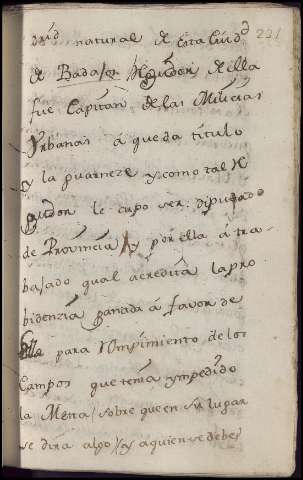 231
drid natural de esta Ciudd
de Badajoz Rexidor de ella
fue Capitan de las Milicias
Urbanas á que da titulo
y la guarneze y como tal R
gidor le cupo ser diputado
de Provincia y por ella á tra-
bajado qual acredita la pro
bidenzia ganada á favor de
ella para rompimiento de los
Campos que tenia ympedido
la Mesta / sobre que en su lugar
se dira algo / y aquien se debe